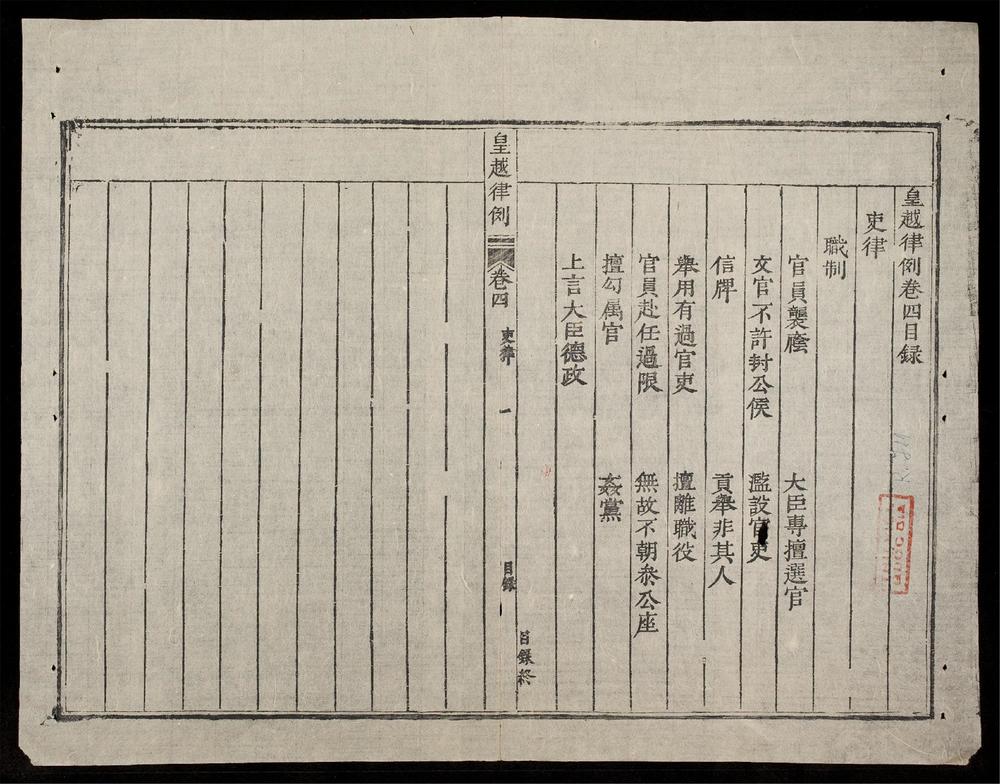 皇越律例卷四目録
吏律
職制
官員襲廕
大臣專擅選官
文官不許封公侯
濫設官吏
信牌
貢舉非其人
舉用有過官吏
擅離職役
官員赴任過限
無故不朝叅公座
擅勾属官
姦黨
上言大臣德政
目録終
皇越律例
卷四
吏律
一
目録